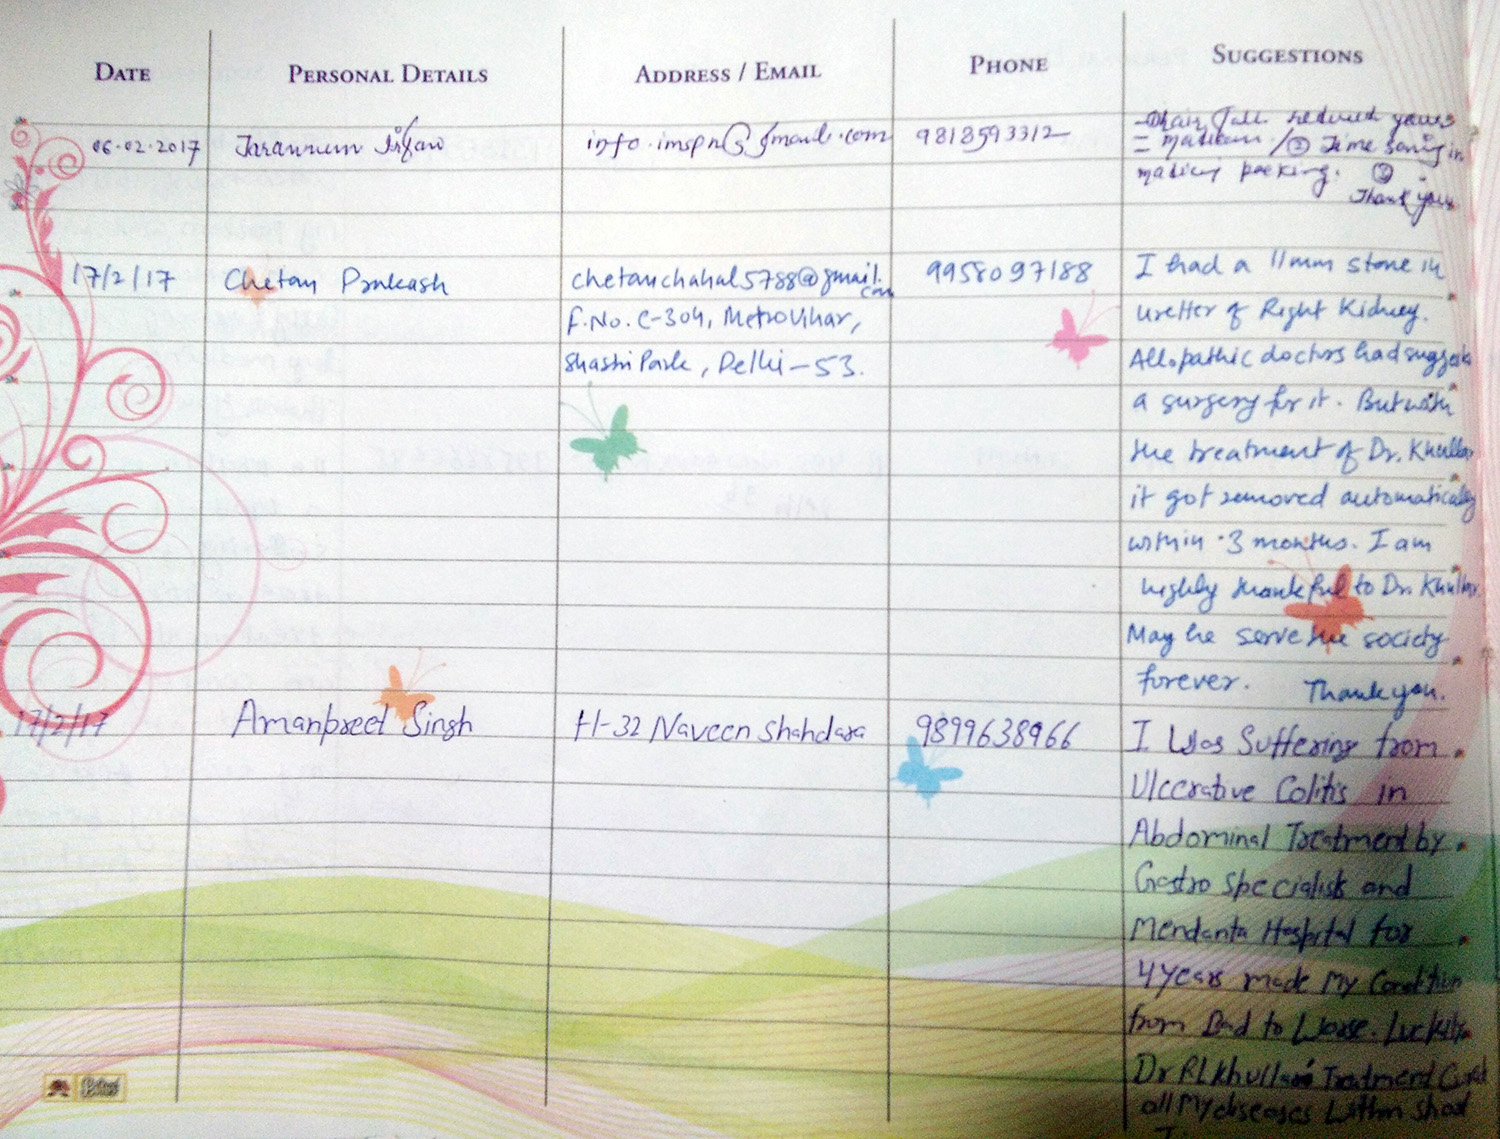 DATE PERSONAL DETAILS ADDRESS / EMAIL PHONE SUGGESTIONS
06.02.2017 Tarannum Irfan info.imspn@gmail.com 9818593312
Hair fall reduced yours
medicin / ② Time saving in
packing. ③
Thank you
17/2/17 Chetan Prakash chetanchahal5788@gmail.com 9958097188 I had a 11mm stone in
F.No. C-304, Metro Vihar, uretter of Right Kidney.
Shastri Park, Delhi-53. Allopathic doctors had suggested
a surgery for it. But with
the treatment of Dr. Khullar
it got removed automatically
within 3 months. I am
highly thankful to Dr. Khullar.
May he serve the society
forever. Thank you.
17/2/17 Amanpreet Singh H-32 Naveen Shahdara 9899638966 I Was Suffering from
Ulcerative Colitis in
Abdominal Treatment by
Gastro Specialists and
Mendanta Hospital for
4 years made My Condition
from Bad to Worse. Luckily
Dr RL Khullar's Treatment Cured
all My diseases within Short